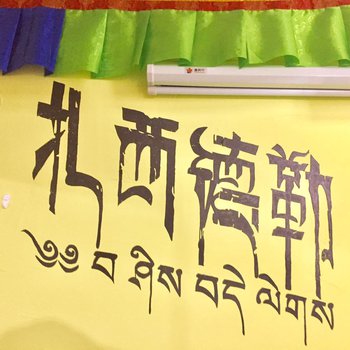 扎西德勒
༄༅ བ ཤིས བདེ ལེགས